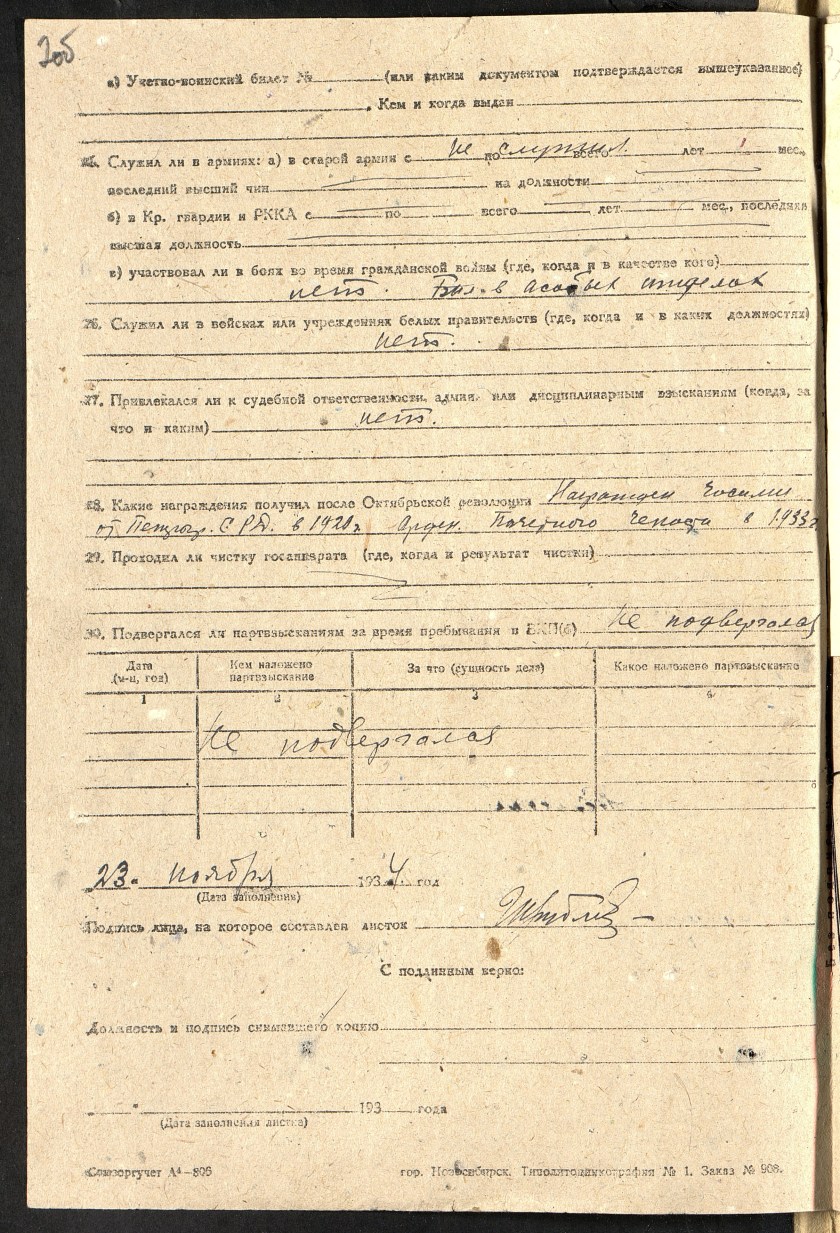 205
а) Учетно-воинский билет № (или каким документом подтверждается вышеуказанное)
. Кем и когда выдан
Служил ли в армиях: а) в старой армии с не по служил. всего лет мес.,
последний высший чин на должности
б) в Кр. гвардии и РККА с по всего лет мес., последняя
высшая должность
в) участвовал ли в боях во время гражданской войны (где, когда и в качестве кого)
нет. Был в асобых отделах
26. Служил ли в войсках или учреждениях белых правительств (где, когда и в каких должностях)
нет.
27. Привлекался ли к судебной ответственности, админ. или дисциплинарным взысканиям (когда, за
что и каким) нет.
28. Какие награждения получил после Октябрьской революции Награжден часами
от Петрогр. С.Р.Д. в 1920 г. Орден. Почетного Чекиста в 1933 г.
29. Проходил ли чистку госаппарата (где, когда и результат чистки)
30. Подвергался ли партвзысканиям за время пребывания в ВКП(б) не подвергался
Дата (м-ц, год) Кем наложено партвзыскание За что (сущность дела) Какое наложено партвзыскание
1 2 3 4
Не подвергался
23. ноября 1934. год
(Дата заполнения)
Подпись лица, на которое составлен листок
С подлинным верно:
Должность и подпись снимавшего копию
193 года
(Дата заполнения листка)
Союзоргучет А4—805 гор. Новосибирск. Типолитоцинкография № 1. Заказ № 908.